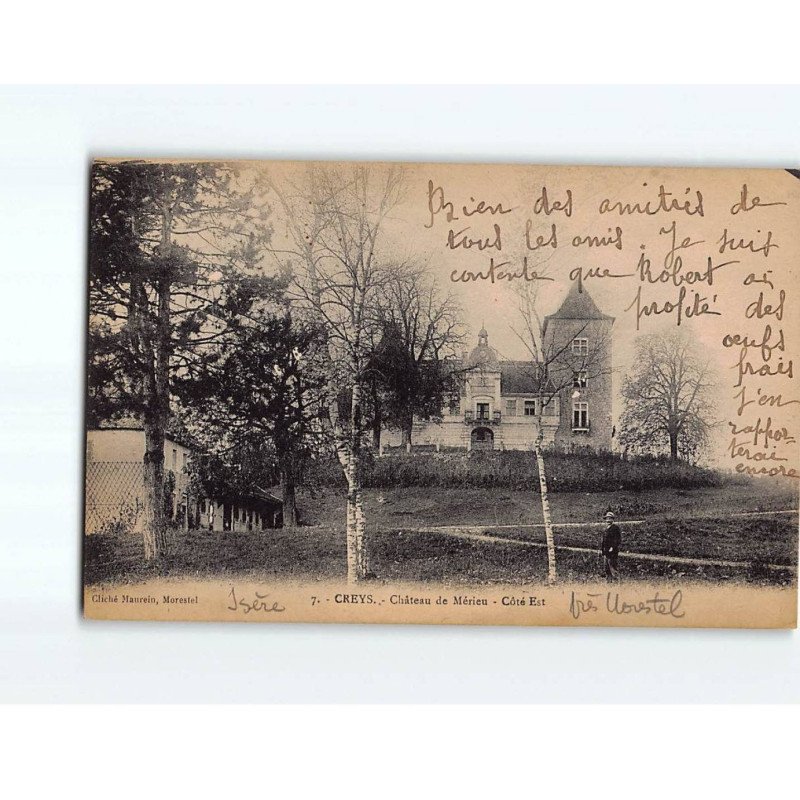 Bien des amitiés de
tous les amis. Je suis
contente que Robert ai
profité des
œufs
frais
J'en
rappor-
terai
encore
Cliché Maurein, Morestel
Isère
7. - CREYS. - Château de Mérieu - Côté Est
près Morestel